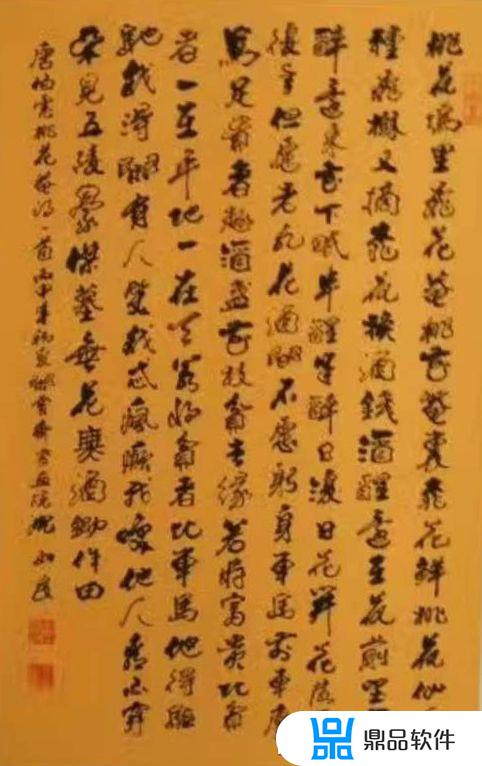 桃花塢里桃花菴桃花菴裏桃花鮮桃花仙
種桃樹又摘桃花換酒錢酒醒還在花前
醉還來花下眠半醒半醉日復日花開花落
復年但願老死花酒間不愿躬身車馬前車塵
馬足貴者趣酒盞花枝貧者緣若將富貴比貧
者一在平地一在天若將貧者比車馬他得驅
馳我得閒有人笑我忒瘋癲我笑他人看不穿
不見五陵豪傑墓無花無酒鋤作田
唐伯虎桃花菴詩一首丙申年初夏
鼎品软件